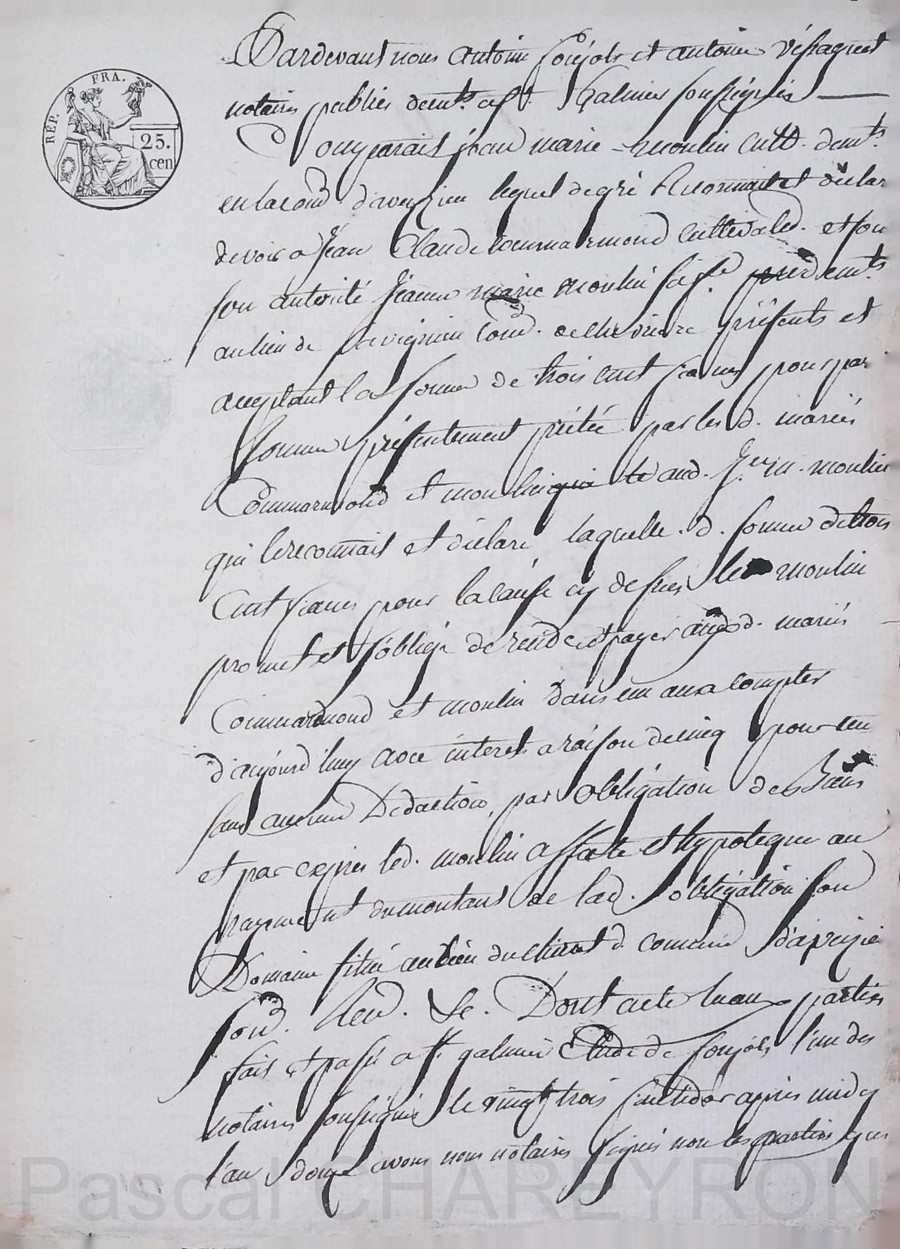 REP. FRA.
25.
cen
Pardevant nous antoine Soujols et antoine
notaires publics demts. a St. Galmier soussignés
Comparait jean marie moulin cultr. demt.
en la comd. d'aveizieu lequel de gré Reconnait et déclar
devoir a Jean Claude Commarmond cultivatr. et sou
son autorité Jeanne marie moulin sa fe. demts.
au lieu de comd. de chevrieres présents et
acceptant la somme de trois cent francs pour par
Somme présentement prêtée par les d. mariés
Commarmond et moulin aud. Jn. m. moulin
qui le reconnait et déclare laquelle d. somme de trois
Cent francs pour la cause cy dessus le moulin
promet et s'oblige de rendre et payer auxd. mariés
Commarmond et moulin dans un an a compter
d'aujourd'huy avec interet a raison de cinq pour cen
sans aucune Deduction, par obligation de biens
et par exprès led. moulin affecte et hypoteque au
payement du montant de lad. obligation son
Domaine situé au lieu du d. commune d'aveizie
Soud. Ren. &c. Dont acte lu aux parties
fait et passé a St. galmier Etude de Soujols l'un des
notaires soussignés le vingt trois après midy
l'an douze avons nous notaires signés non les parties que
Pascal CHAREYRON